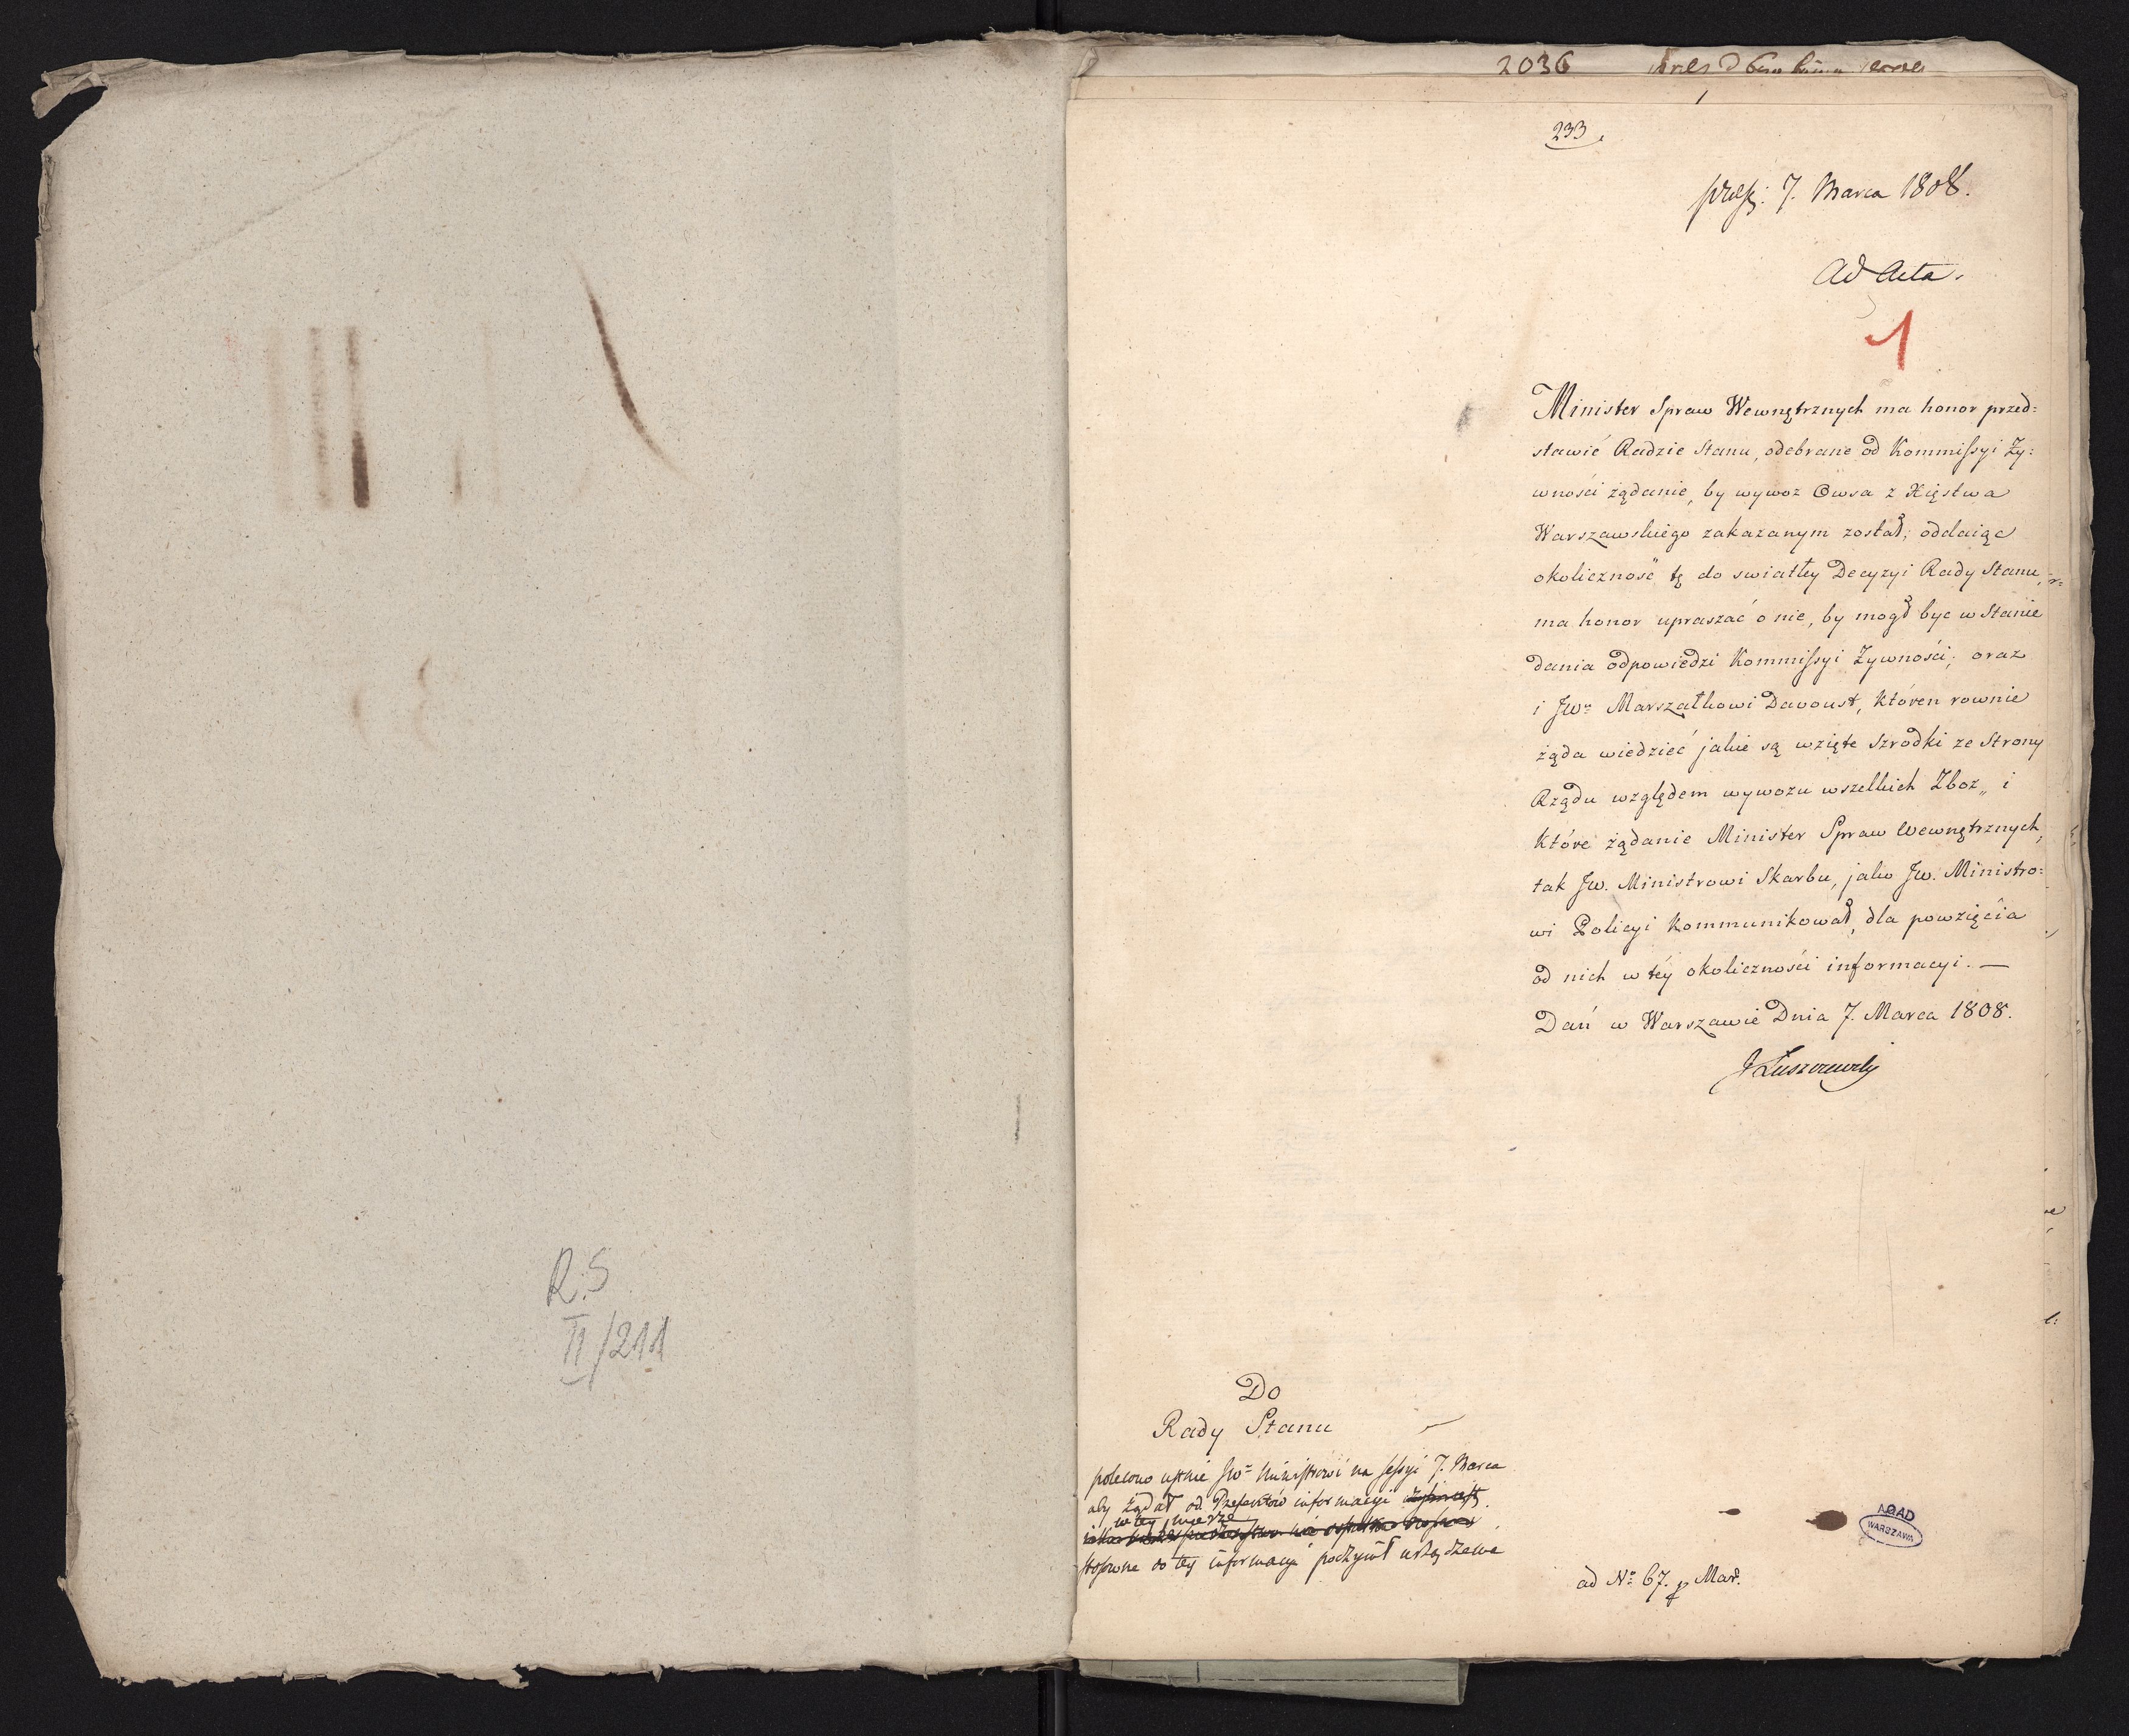 R.S
II/211
2036
1
233.
7. Marca 1808.
Ad Acta.
1
Minister Spraw Wewnętrznych ma honor przed=
stawić Radzie Stanu, odebrane od Kommissyi Ży=
wności żądanie, by wywoz Owsa z Xięstwa
Warszawskiego zakazanym został; oddaiąc
okoliczność tę do swiatłey Decyzyi Rady Stanu,
ma honor upraszać o nie, by mogł byc w Stanie
dania odpowiedzi Kommissyi Żywności; oraz
i JWu Marszałkowi Davoust, któren rownie
żąda wiedzieć jakie są wzięte szrodki ze Strony
Rządu względem wywozu wszelkich Zboż„ i
które żądanie Minister Spraw Wewnętrznych,
tak JW. Ministrowi Skarbu, jako JW. Ministro=
wi Policyi kommunikował, dla powzięcia
od nich w téy okoliczności informacyi. —
Dań w Warszawie Dnia 7. Marca 1808.
J Łuszczewski
Do
Rady Stanu
polecono ustnie JWu Ministrowi na sessyi 7. Marca
aby żądał od Prefektów informacyi
w tey mierze
stosowne do tey informacyi poczynił urządzenie
ad No 67. Mar.
AGAD
WARSZAWA